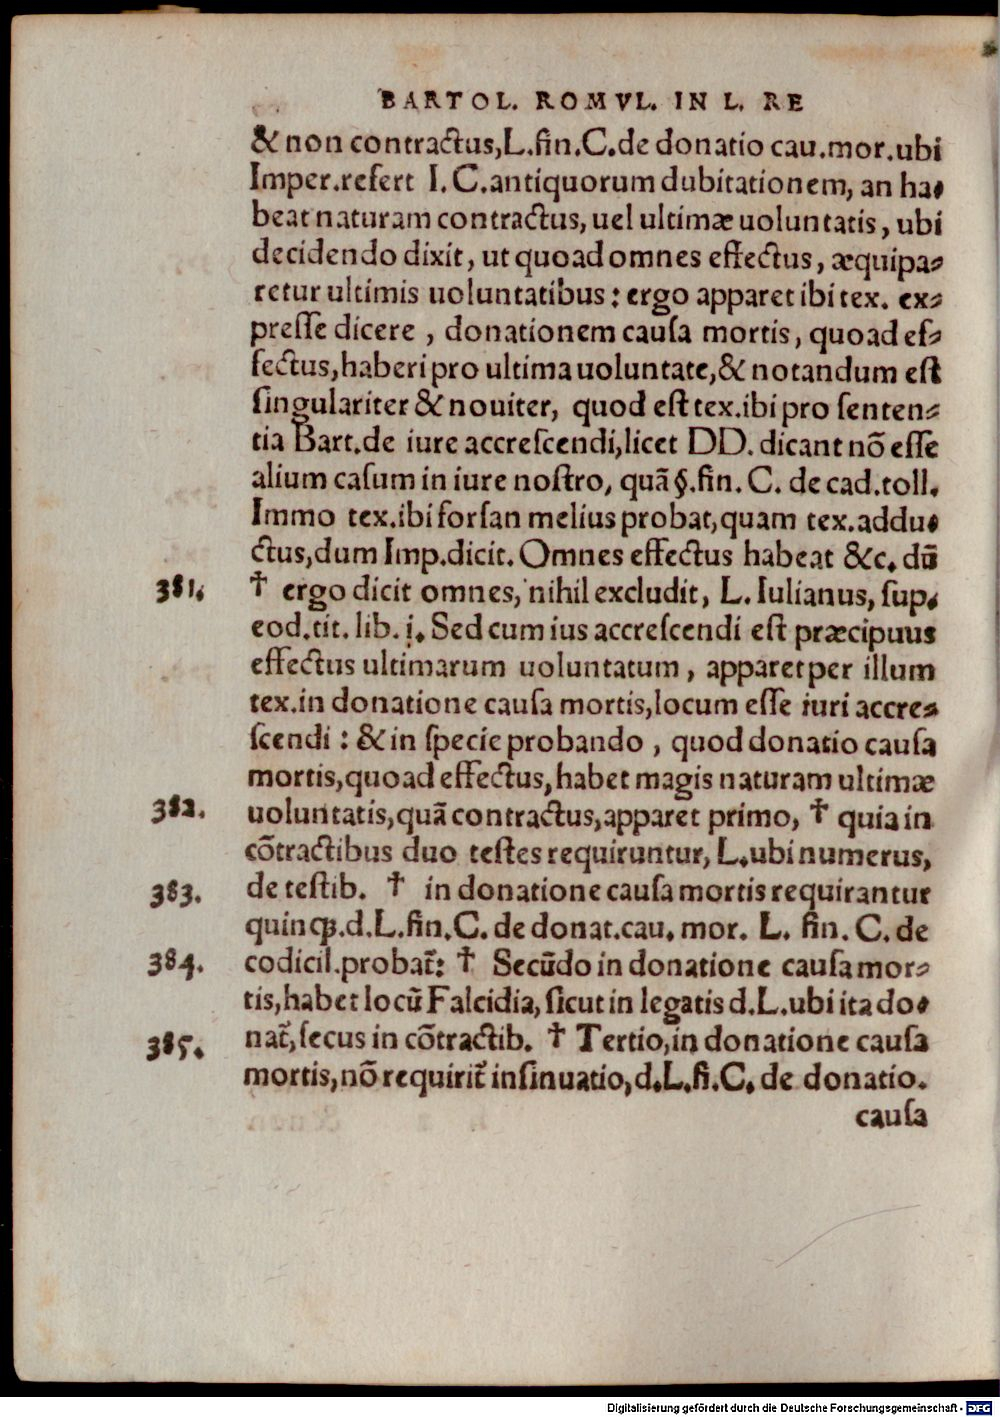 BARTOL. ROMVL. IN L. RE
& non contractus, L. fin. C. de donatio cau. mor. ubi
Imper. refert I. C. antiquorum dubitationem, an ha-
beat naturam contractus, uel ultimæ uoluntatis, ubi
decidendo dixit, ut quoad omnes effectus, æquipa-
retur ultimis uoluntatibus: ergo apparet ibi tex. ex-
presſe dicere, donationem cauſa mortis, quoad ef-
fectus, haberi pro ultima uoluntate, & notandum eſt
ſingulariter & nouiter, quod eſt tex. ibi pro ſenten-
tia Bart. de iure accreſcendi, licet DD. dicant nõ eſſe
alium caſum in iure noſtro, quã §. fin. C. de cad. toll.
Immo tex. ibi forſan melius probat, quam tex. addu-
ctus, dum Imp. dicit. Omnes effectus habeat &c. dũ
381. † ergo dicit omnes, nihil excludit, L. Iulianus, ſup.
eod. tit. lib. j. Sed cum ius accreſcendi eſt præcipuus
effectus ultimarum uoluntatum, apparet per illum
tex. in donatione cauſa mortis, locum eſſe iuri accre-
ſcendi: & in ſpecie probando, quod donatio cauſa
mortis, quoad effectus, habet magis naturam ultimæ
382. uoluntatis, quã contractus, apparet primo, † quia in
cõtractibus duo teſtes requiruntur, L. ubi numerus,
383. de teſtib. † in donatione cauſa mortis requirantur
quinqȝ. d. L. fin. C. de donat. cau. mor. L. fin. C. de
384. codicil. probat̃: † Secũdo in donatione cauſa mor-
tis, habet locũ Falcidia, ſicut in legatis d. L. ubi ita do-
385. nat̃, ſecus in cõtractib. † Tertio, in donatione cauſa
mortis, nõ requirit̃ inſinuatio, d. L. fi. C. de donatio.
cauſa
Digitalisierung gefördert durch die Deutsche Forschungsgemeinschaft - DFG